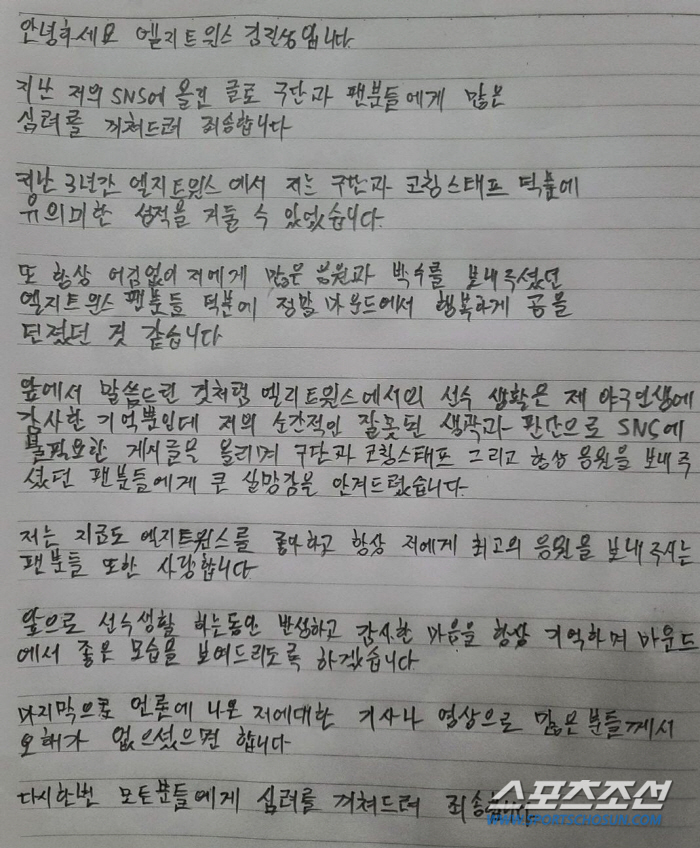 안녕하세요 엘지트윈스 김진성입니다.
지난 저의 SNS에 올린 글로 구단과 팬분들에게 많은
심려를 끼쳐드려 죄송합니다
지난 3년간 엘지트윈스에서 저는 구단과 코칭스태프 덕분에
유의미한 성적을 거둘 수 있었습니다.
또 항상 어김없이 저에게 많은 응원과 박수를 보내주셨던
엘지트윈스 팬분들 덕분에 정말 마운드에서 행복하게 공을
던졌던 것 같습니다
앞에서 말씀드린 것처럼 엘지트윈스에서의 선수 생활은 제 야구인생에
감사한 기억뿐인데 저의 순간적인 잘못된 생각과 판단으로 SNS에
불필요한 게시글을 올리며 구단과 코칭스태프 그리고 항상 응원을 보내주
셨던 팬분들에게 큰 실망감을 안겨드렸습니다.
저는 지금도 엘지트윈스를 좋아하고 항상 저에게 최고의 응원을 보내주시는
팬분들 또한 사랑합니다
앞으로 선수생활 하는동안 반성하고 감사한 마음을 항상 기억하며 마운드
에서 좋은 모습을 보여드리도록 하겠습니다
마지막으로 언론에 나온 저에대한 기사나 영상으로 많은분들께서
오해가 없으셨으면 합니다
다시한번 모든분들에게 심려를 끼쳐드려 죄송합니다
스포츠조선
WWW.SPORTSCHOSUN.COM